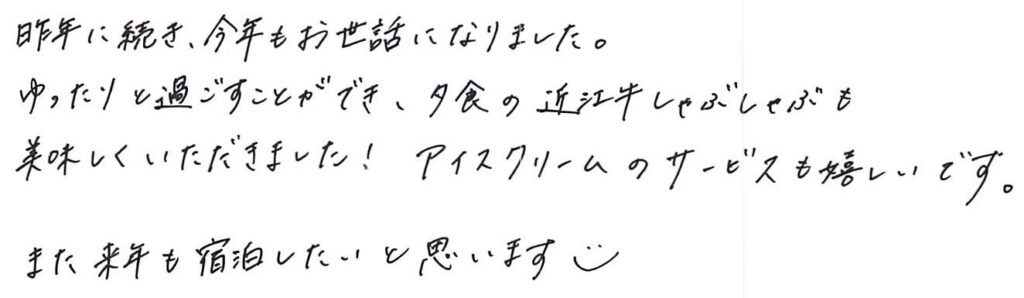 昨年に続き、今年もお世話になりました。
ゆったりと過ごすことができ、夕食の近江牛しゃぶしゃぶも
美味しくいただきました! アイスクリームのサービスも嬉しいです。
また来年も宿泊したいと思います